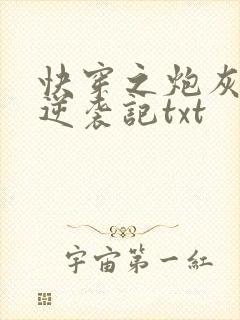 快穿之炮灰
逆袭記txt
宇宙第一紅